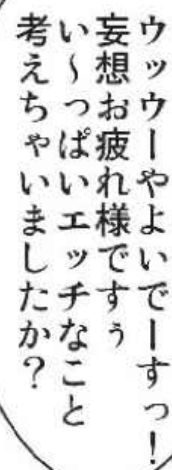 ウッウーやよいでーすっ！
妄想お疲れ様ですぅ
い～っぱいエッチなこと
考えちゃいましたか？